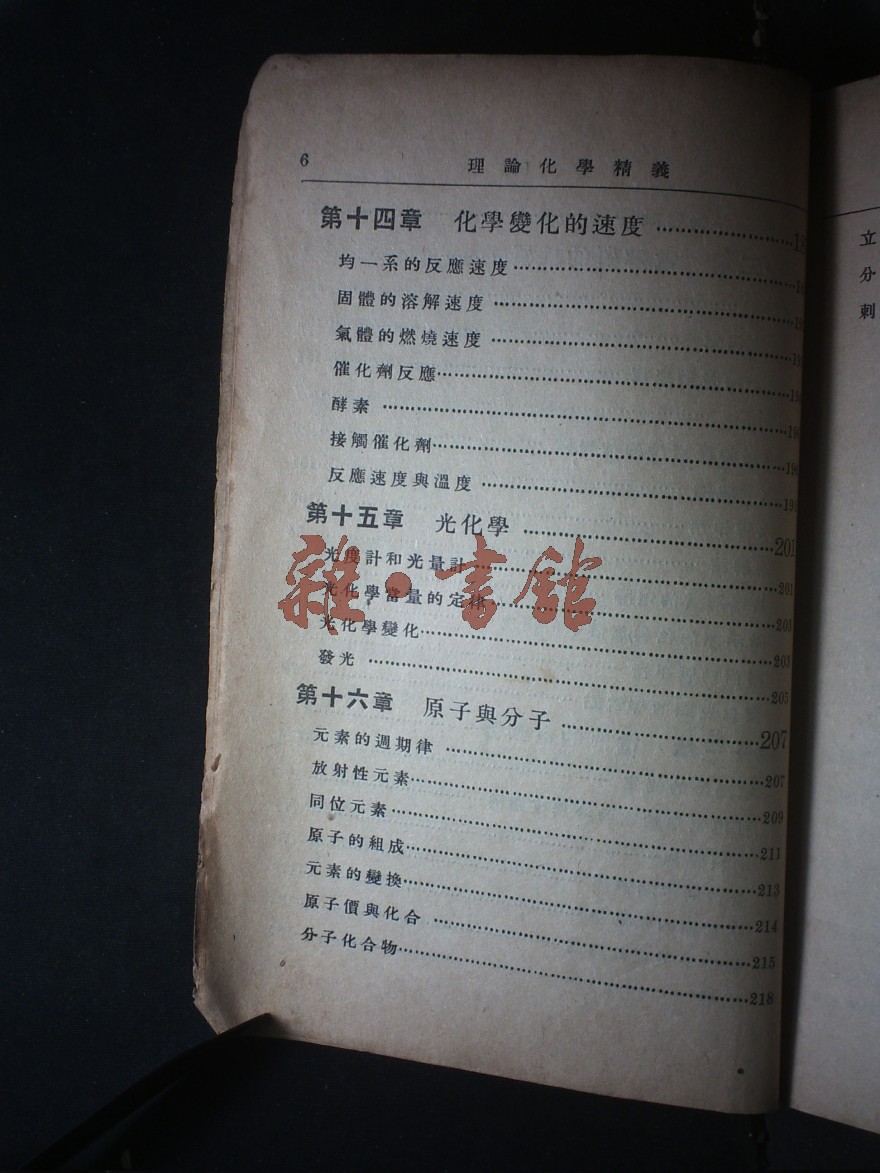 6 理論化學精義
第十四章 化學變化的速度
均一系的反應速度
固體的溶解速度
氣體的燃燒速度
催化劑反應
酵素
接觸催化劑
反應速度與溫度
第十五章 光化學 201
光度計和光量計 201
光化學當量的定律 203
光化學變化 203
發光 205
第十六章 原子與分子 207
元素的週期律 207
放射性元素 209
同位元素 211
原子的組成 213
元素的變換 214
原子價與化合 215
分子化合物 218
雜·書館
立
分
刺